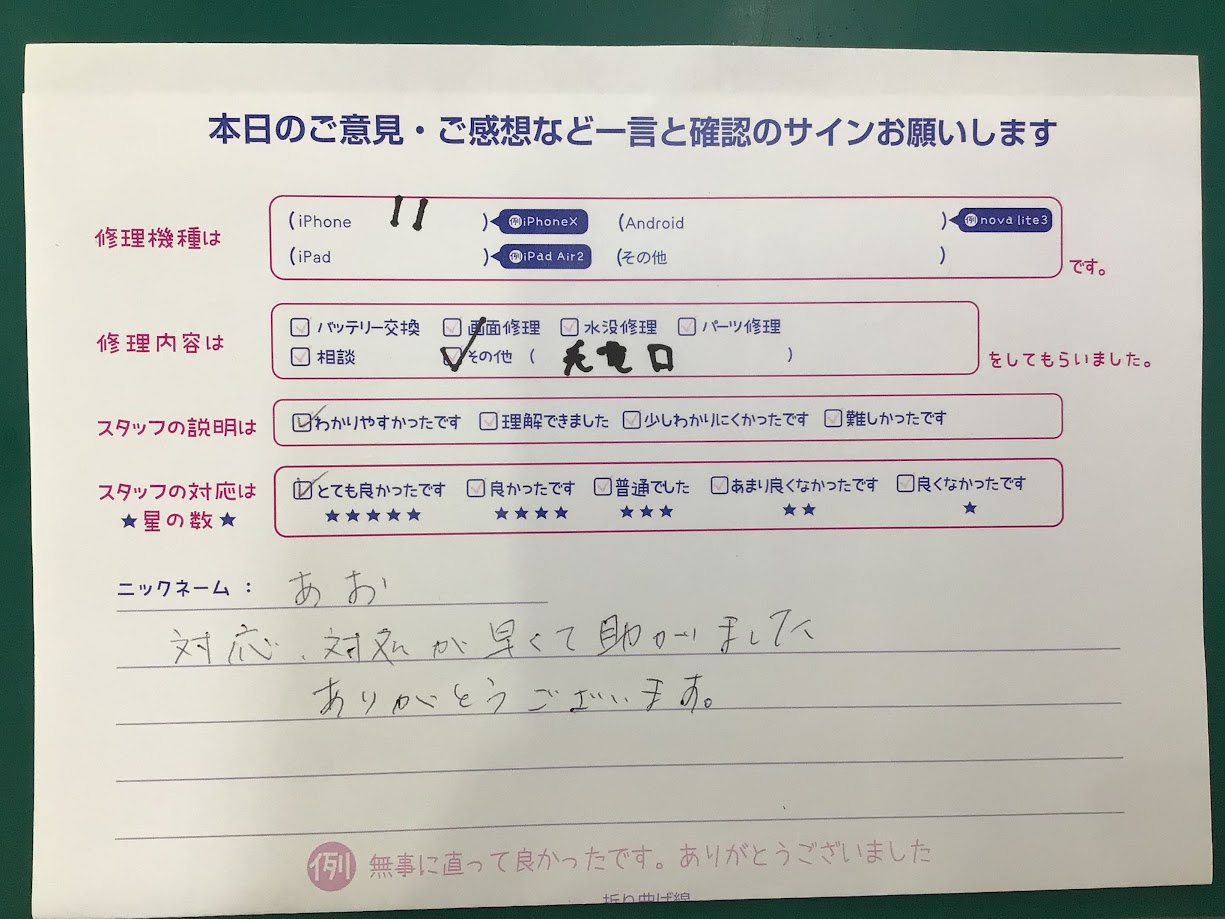 本日のご意見・ご感想など一言と確認のサインお願いします
修理機種は
(iPhone 11 ) 例iPhoneX (Android ) 例nova lite3
(iPad ) 例iPad Air2 (その他 ) です。
修理内容は
バッテリー交換 画面修理 水没修理 パーツ修理
相談 その他 ( 充電口 ) をしてもらいました。
スタッフの説明は わかりやすかったです 理解できました 少しわかりにくかったです 難しかったです
スタッフの対応は とても良かったです 良かったです 普通でした あまり良くなかったです 良くなかったです
★星の数★ ★★★★★ ★★★★ ★★★ ★★ ★
ニックネーム : あお
対応、対処が早くて助かりました
ありがとうございます。
例 無事に直って良かったです。ありがとうございました
折り曲げ線